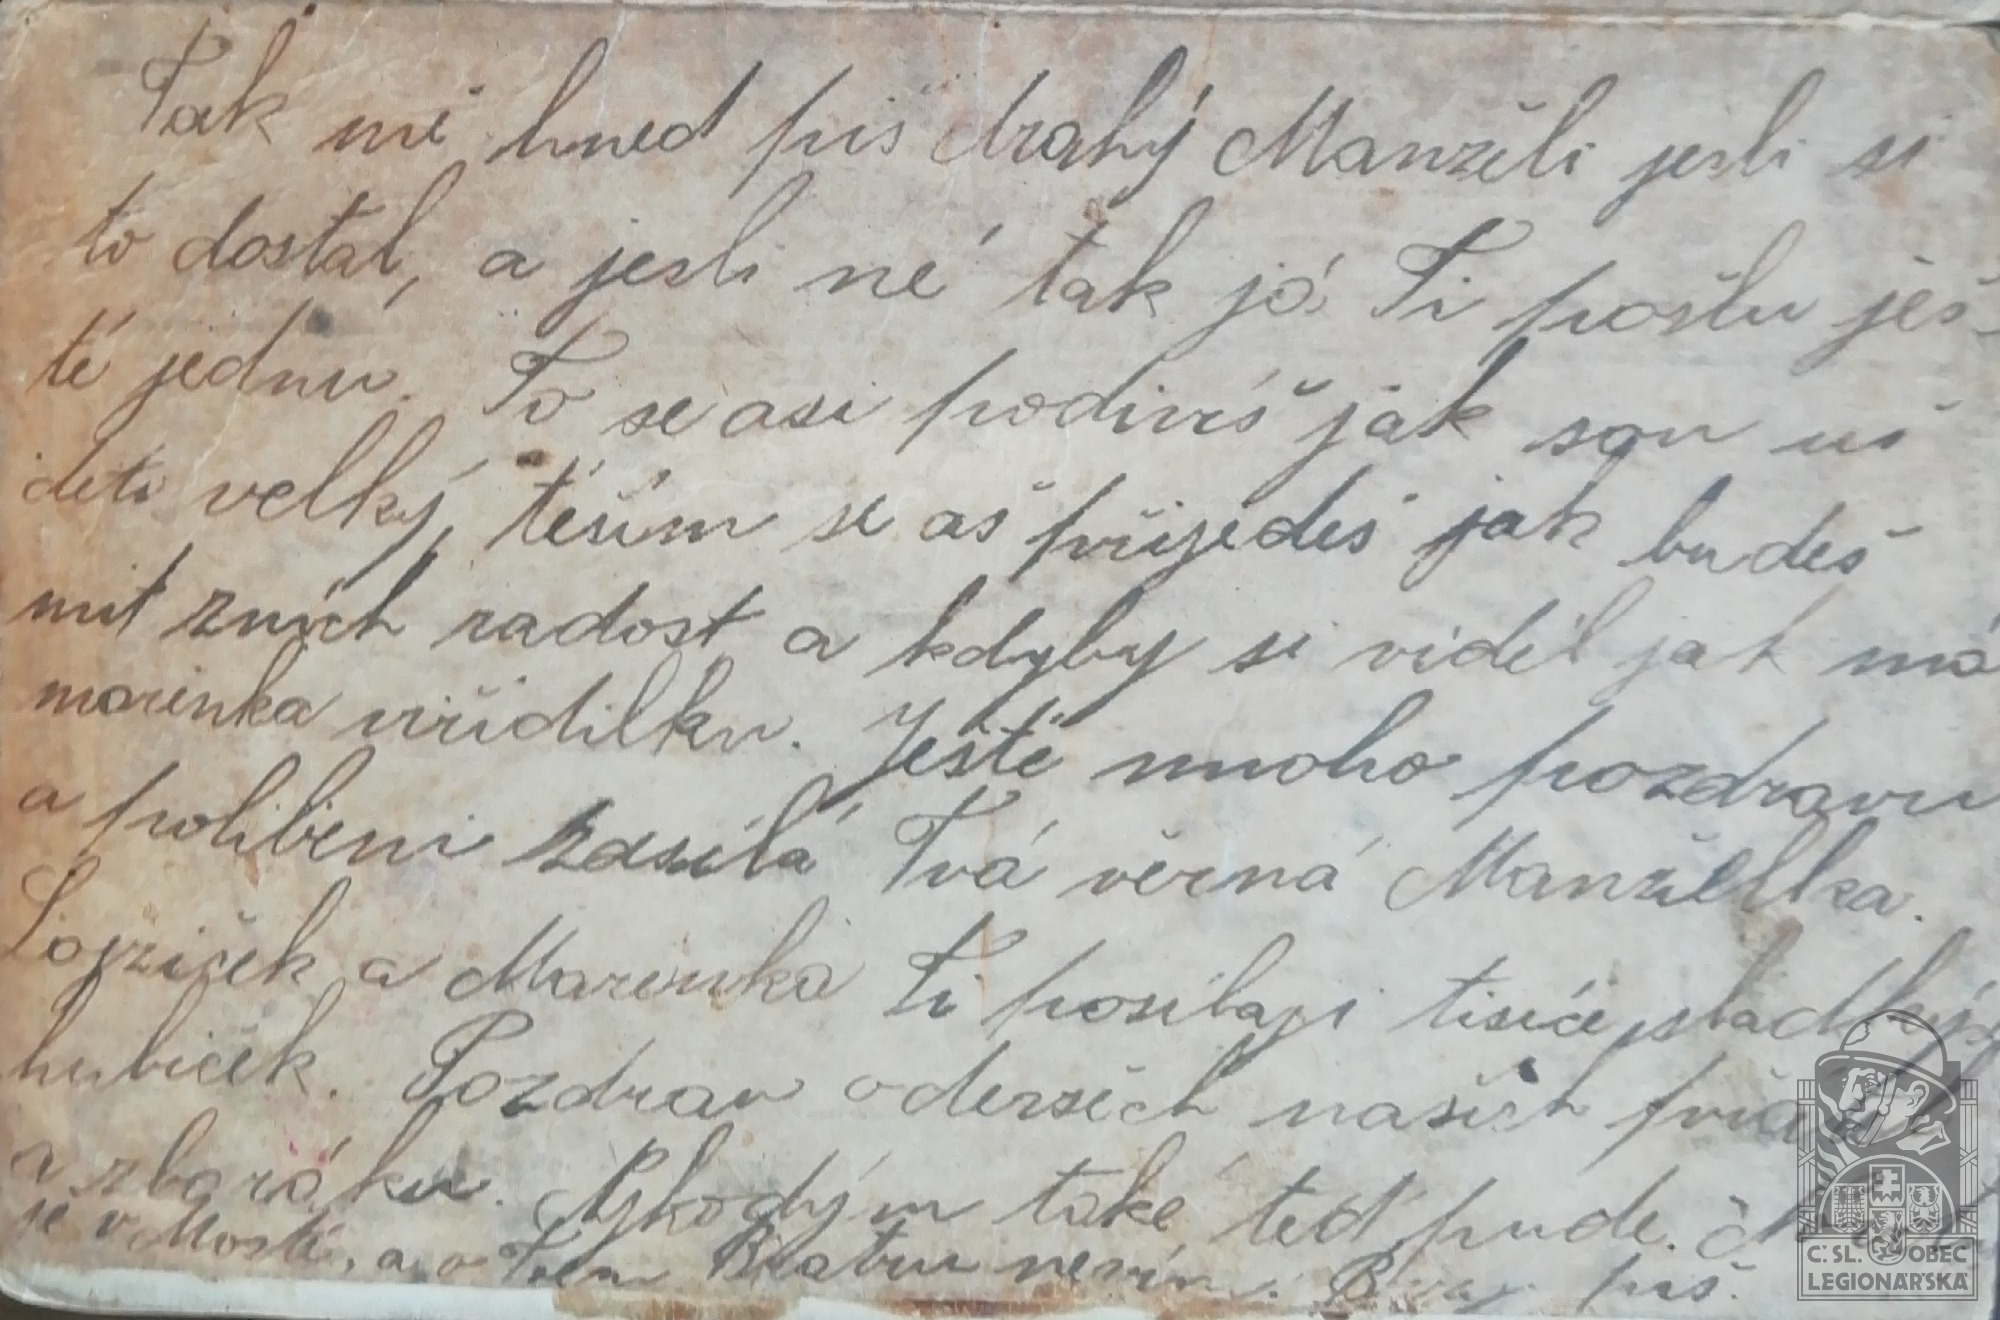 Tak mě hned piš drahý Manželi jesli si
to dostal, a jesli né tak já Ti pošlu ješ-
tě jednu. To se asi podivíš jak sou uš
děti velký, těším se aš přijedeš jak budeš
mit znich radost a kdyby si viděl jak má
marinka vířidilku. Ještě mnoho pozdravu
a políbeni zasílá Tvá věrná Manželka.
Lojziček a Marinka Ti posílaji tisíce sladkých
hubiček. Pozdrav oderšech našich
v zbaráku. také teď pude.
je v Mostě, a o Tvem Bratru nevím. piš.
C. SL. OBEC
LEGIONÁŘSKÁ